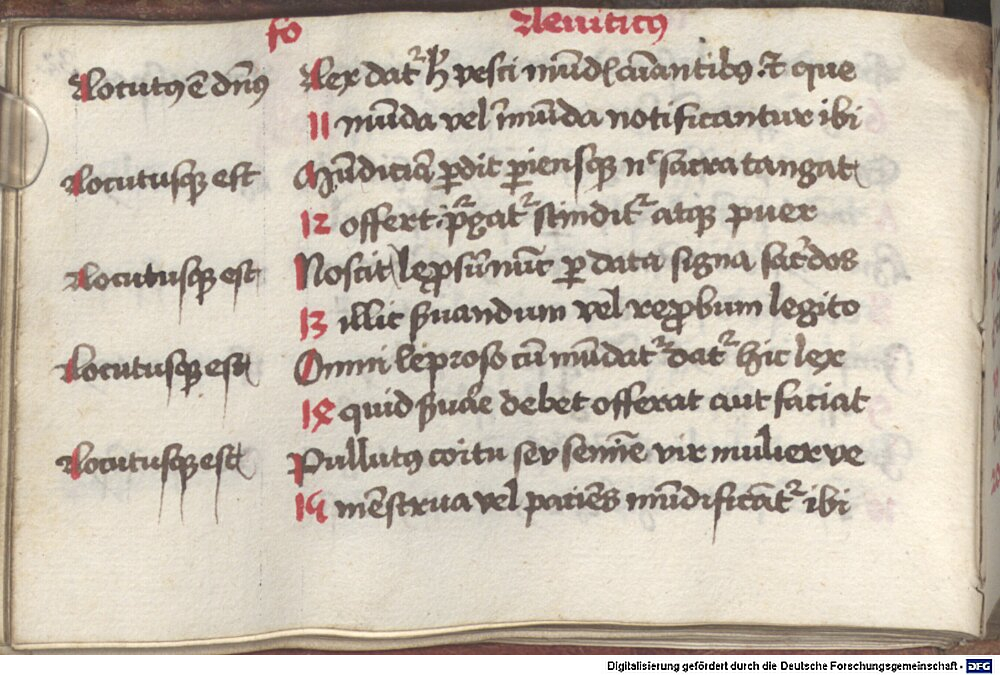 fo Leuiticus
Locutꝯ ē dn̄s Lex datr̉ h̄ vesci mūd cūantibꝯ · et que
11 mūda vel īmūda notificantur ibi
Locutusqꝫ est Mūdiciā ꝑdit ꝑiensqꝫ nͨ sacra tangat
12 offert · pgatr̉ scindit̉ atqꝫ puer
Locutusqꝫ est Noscit lepsū nūc ꝑ data signa sac̉dos
13 illic s̉uandum vel reꝓbum legito
Locutusqꝫ est Omni leproso cū mūdatr̉ datr̉ hic lex
14 quid s̉uar̄e debet offerat aut faciat
Locutusqꝫ est Pullutꝯ coitu seu semīe vir mulier ve
15 mēstrua vel paciēs mūdificātr̉ ibi
Digitalisierung gefördert durch die Deutsche Forschungsgemeinschaft - DFG